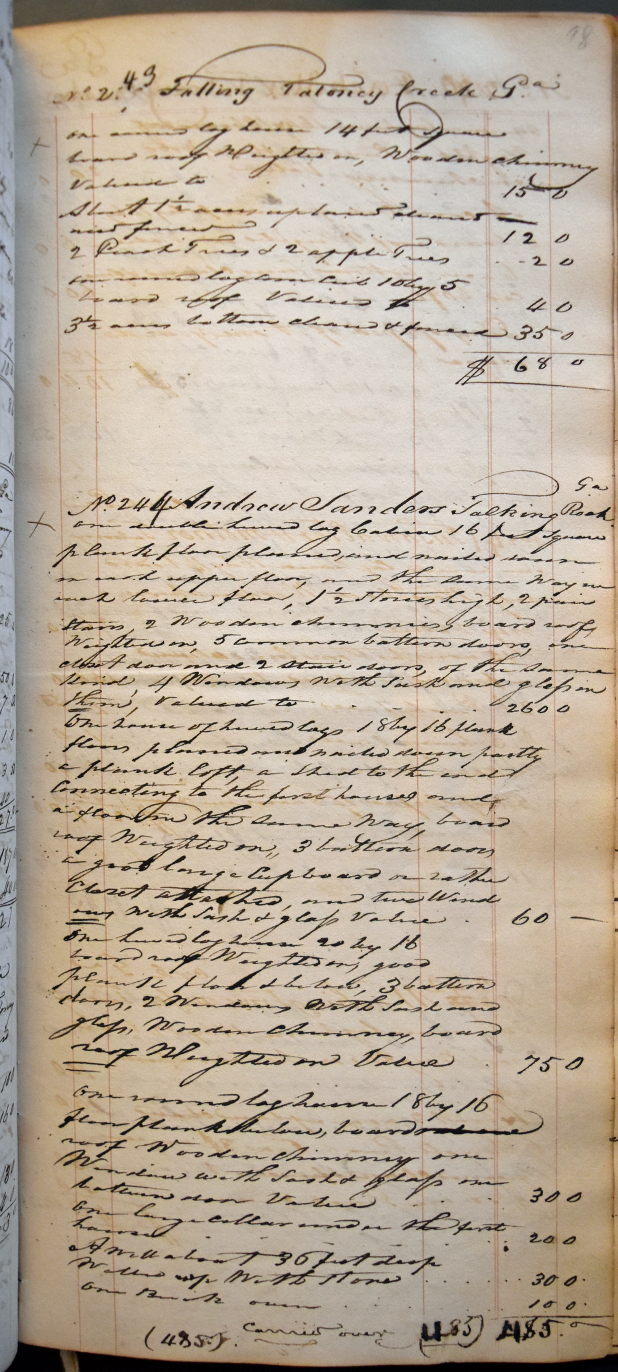 98
No 243 Falling Taloney Creek Ga
one round log house 14 feet square
board roof Weighted on, Wooden chimney
Valued to 15 0
About 1½ acres upland cleared
and fenced 12 0
2 Peach Trees & 2 apple Trees 2 0
one round log corn Crib 10 by 5
board roof Valued to 4 0
3½ acres bottom cleared & fenced 35 0
$ 68 0
Ga
No 244 Andrew Sanders Talking Rock
one double hewed log Cabin 16 feet square
plank floor planed, and nailed down
in each upper floor, and the same way in
each lower floor, 1½ Stories high, 2 pair
Stairs, 2 Wooden chimnies, board roof
Weighted on, 5 common batten doors, one
closet door and 2 stair doors, of the same
kind, 4 Windows with Sash and glass in
them, Valued to 260 0
One house of hewed logs 18 by 16 plank
floors planed and nailed down partly
a plank loft, a Shed to the end
Connecting to the first house and
a floor in the same Way, board
roof Weighted on, 3 batten doors
a good large Cupboard or rather
Closet attached, and two Wind
ows With Sash & glass Value 60 –
One hewed log house 20 by 16
board roof Weighted on, good
plank floor below, 3 batten
doors, 2 Windows With Sash and
glass, Wooden Chimney, board
roof Weighted on Value 75 0
One round log house 18 by 16
floor plank below, board
roof Wooden Chimney one
Window with Sash & glass one
batten door Value 30 0
One large Cellar under the first
house 20 0
A Well about 36 feet deep
Walled up With Stone 30 0
One Brick oven 10 0
(485.) Carried over (485) 485. 0